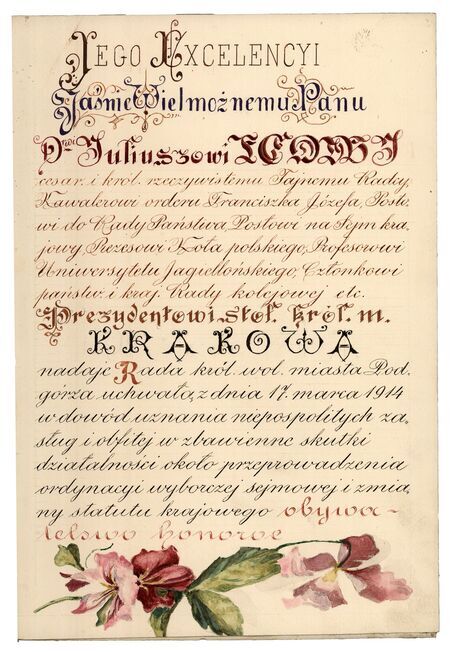 JEGO EXCELENCYI
Jaśnie Wielmożnemu Panu
Drowi Juliuszowi LEOWI
cesar. i król. rzeczywistemu Tajnemu Radcy,
Kawalerowi orderu Franciszka Józefa, Posło-
wi do Rady Państwa, Posłowi na Sejm kra-
jowy, Prezesowi Koła polskiego, Profesorowi
Uniwersytetu Jagiellońskiego, Członkowi
państw. i kraj. Rady kolejowej etc.
Prezydentowi stoł. król. m.
KRAKOWA
nadaje Rada król. wol. miasta Pod-
górza uchwałą z dnia 17. marca 1914
w dowód uznania niepospolitych za-
sług i obfitej w zbawienne skutki
działalności około przeprowadzenia
ordynacyi wyborczej sejmowej i zmia-
ny statutu krajowego obywa-
telstwo honorowe